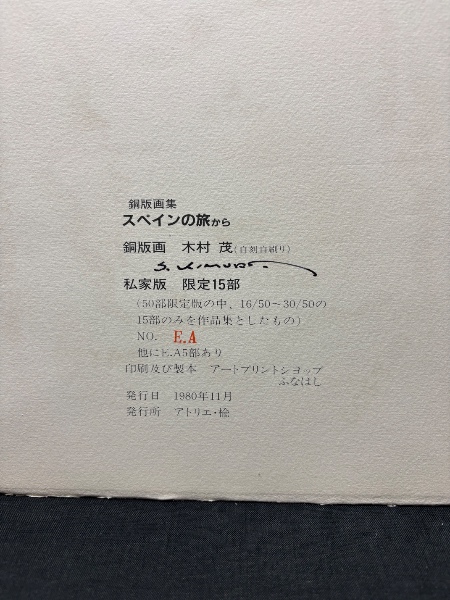 銅版画集
スペインの旅から
銅版画 木村 茂(自刻自刷り)
S. KIMURA
私家版 限定15部
(50部限定版の中、16/50~30/50の
15部のみを作品集としたもの)
NO. E.A
他にE.A5部あり
印刷及び製本 アートプリントショップ
ふなはし
発行日 1980年11月
発行所 アトリエ・楡